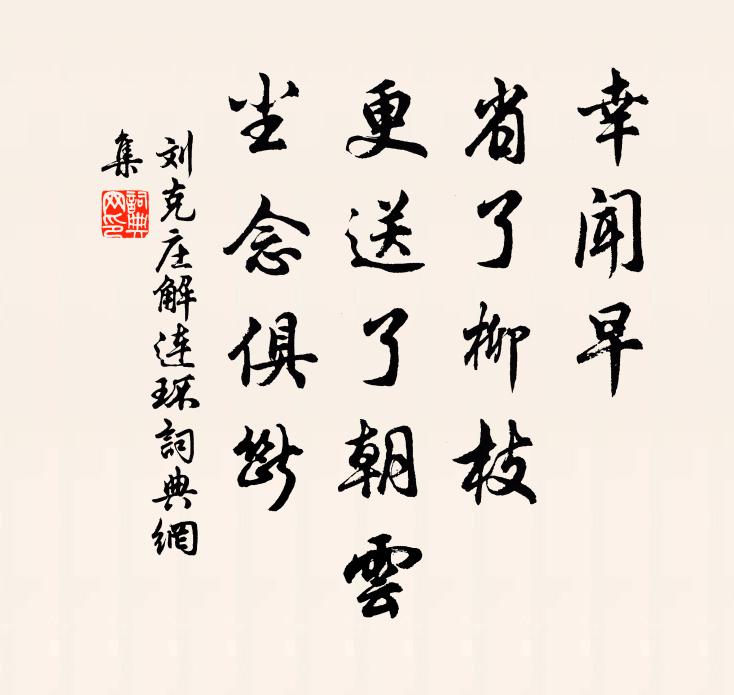 幸闻早
省了柳枝
更送了朝雲
尘念俱断
刘克庄解连环詞典網
集
詞典网印